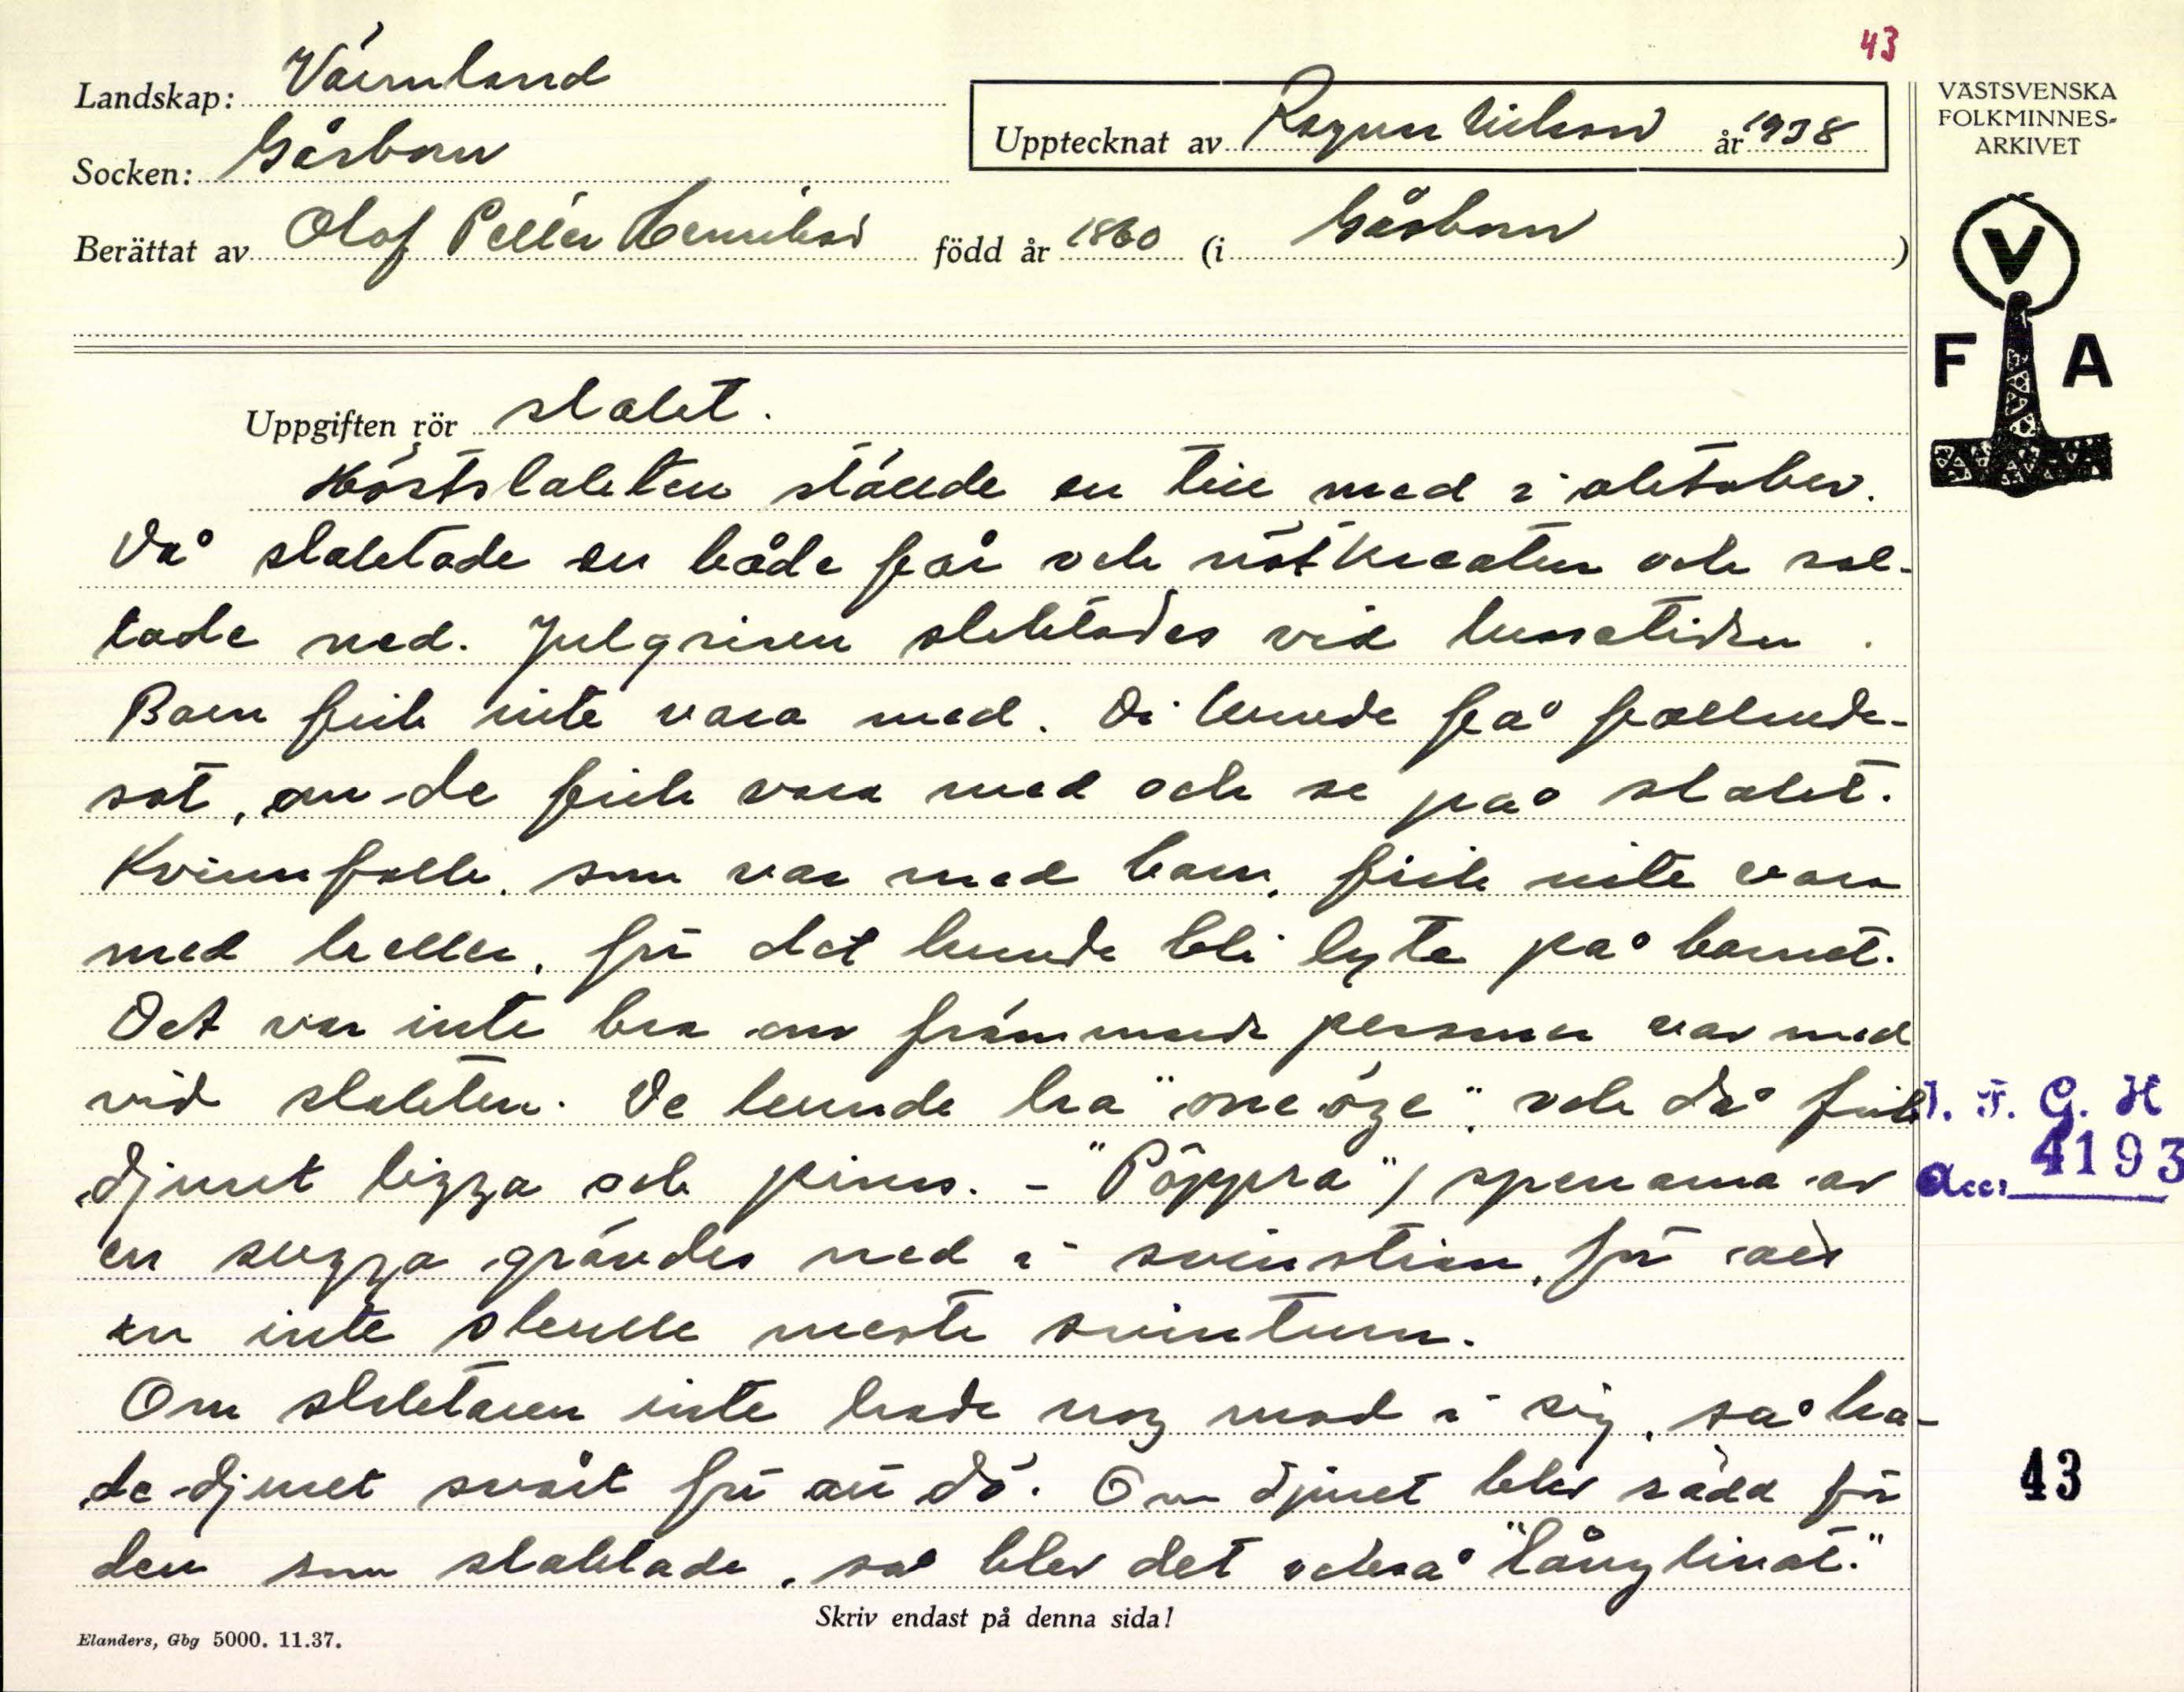 43
Landskap: Värmland
Socken: Gåsborn
Upptecknat av Ragnar Nilsson år 1938
Berättat av Olof Petter Henrikson född år 1860 (i Gåsborn)
VÄSTSVENSKA
FOLKMINNES-
ARKIVET
V
F A
Uppgiften rör slakt.
Höstslakten stände en till med i oktober.
Då slaktade en både får och nötkreatur och sal-
tade ned. Julgrisen slaktades vid lussetiden.
Barn fick inte vara med. Di kunde få fallande-
sot, om de fick vara med och se på slakt.
Kvinnfolk, som var med barn, fick inte vara
med heller, för det kunde bli lyte på barnet.
Det var inte bra om främmande personer var med
vid slakten. De kunde ha "one öge" och då fick
djuret ligga och pinas. - "Pöppra" / spenarna av
en sugga grävdes ned i svinstian, för att
en inte skulle meste svinturn.
Om slaktaren inte hade nog mod i sig, så ha-
de djuret svårt för att dö. Om djuret blev rädd för
den som slaktade, så blev det också "långlivat."
I. F. G. H
Acc. 4193
43
Skriv endast på denna sida!
Elanders, Gbg 5000. 11.37.